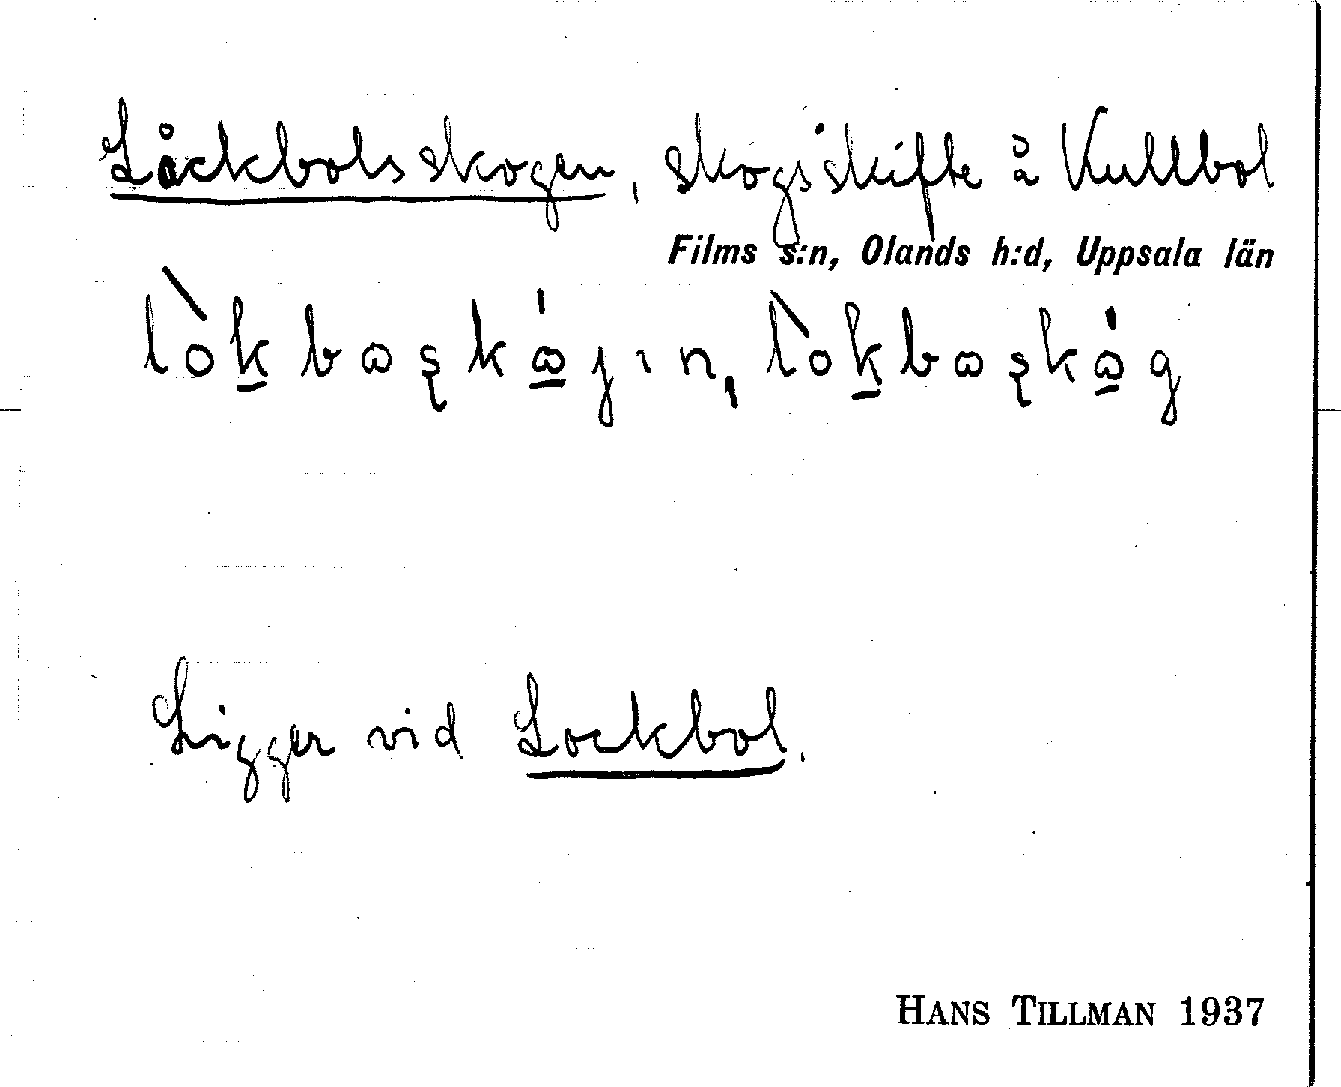 Låckbolsskogen, skogsskifte å Kullbol
Films s:n, Olands h:d, Uppsala län
lòk̲bɷʂkɷ̲́jın, lòk̲bɷʂkɷ̲́g
Ligger vid Lockbol.
HANS TILLMAN 1937